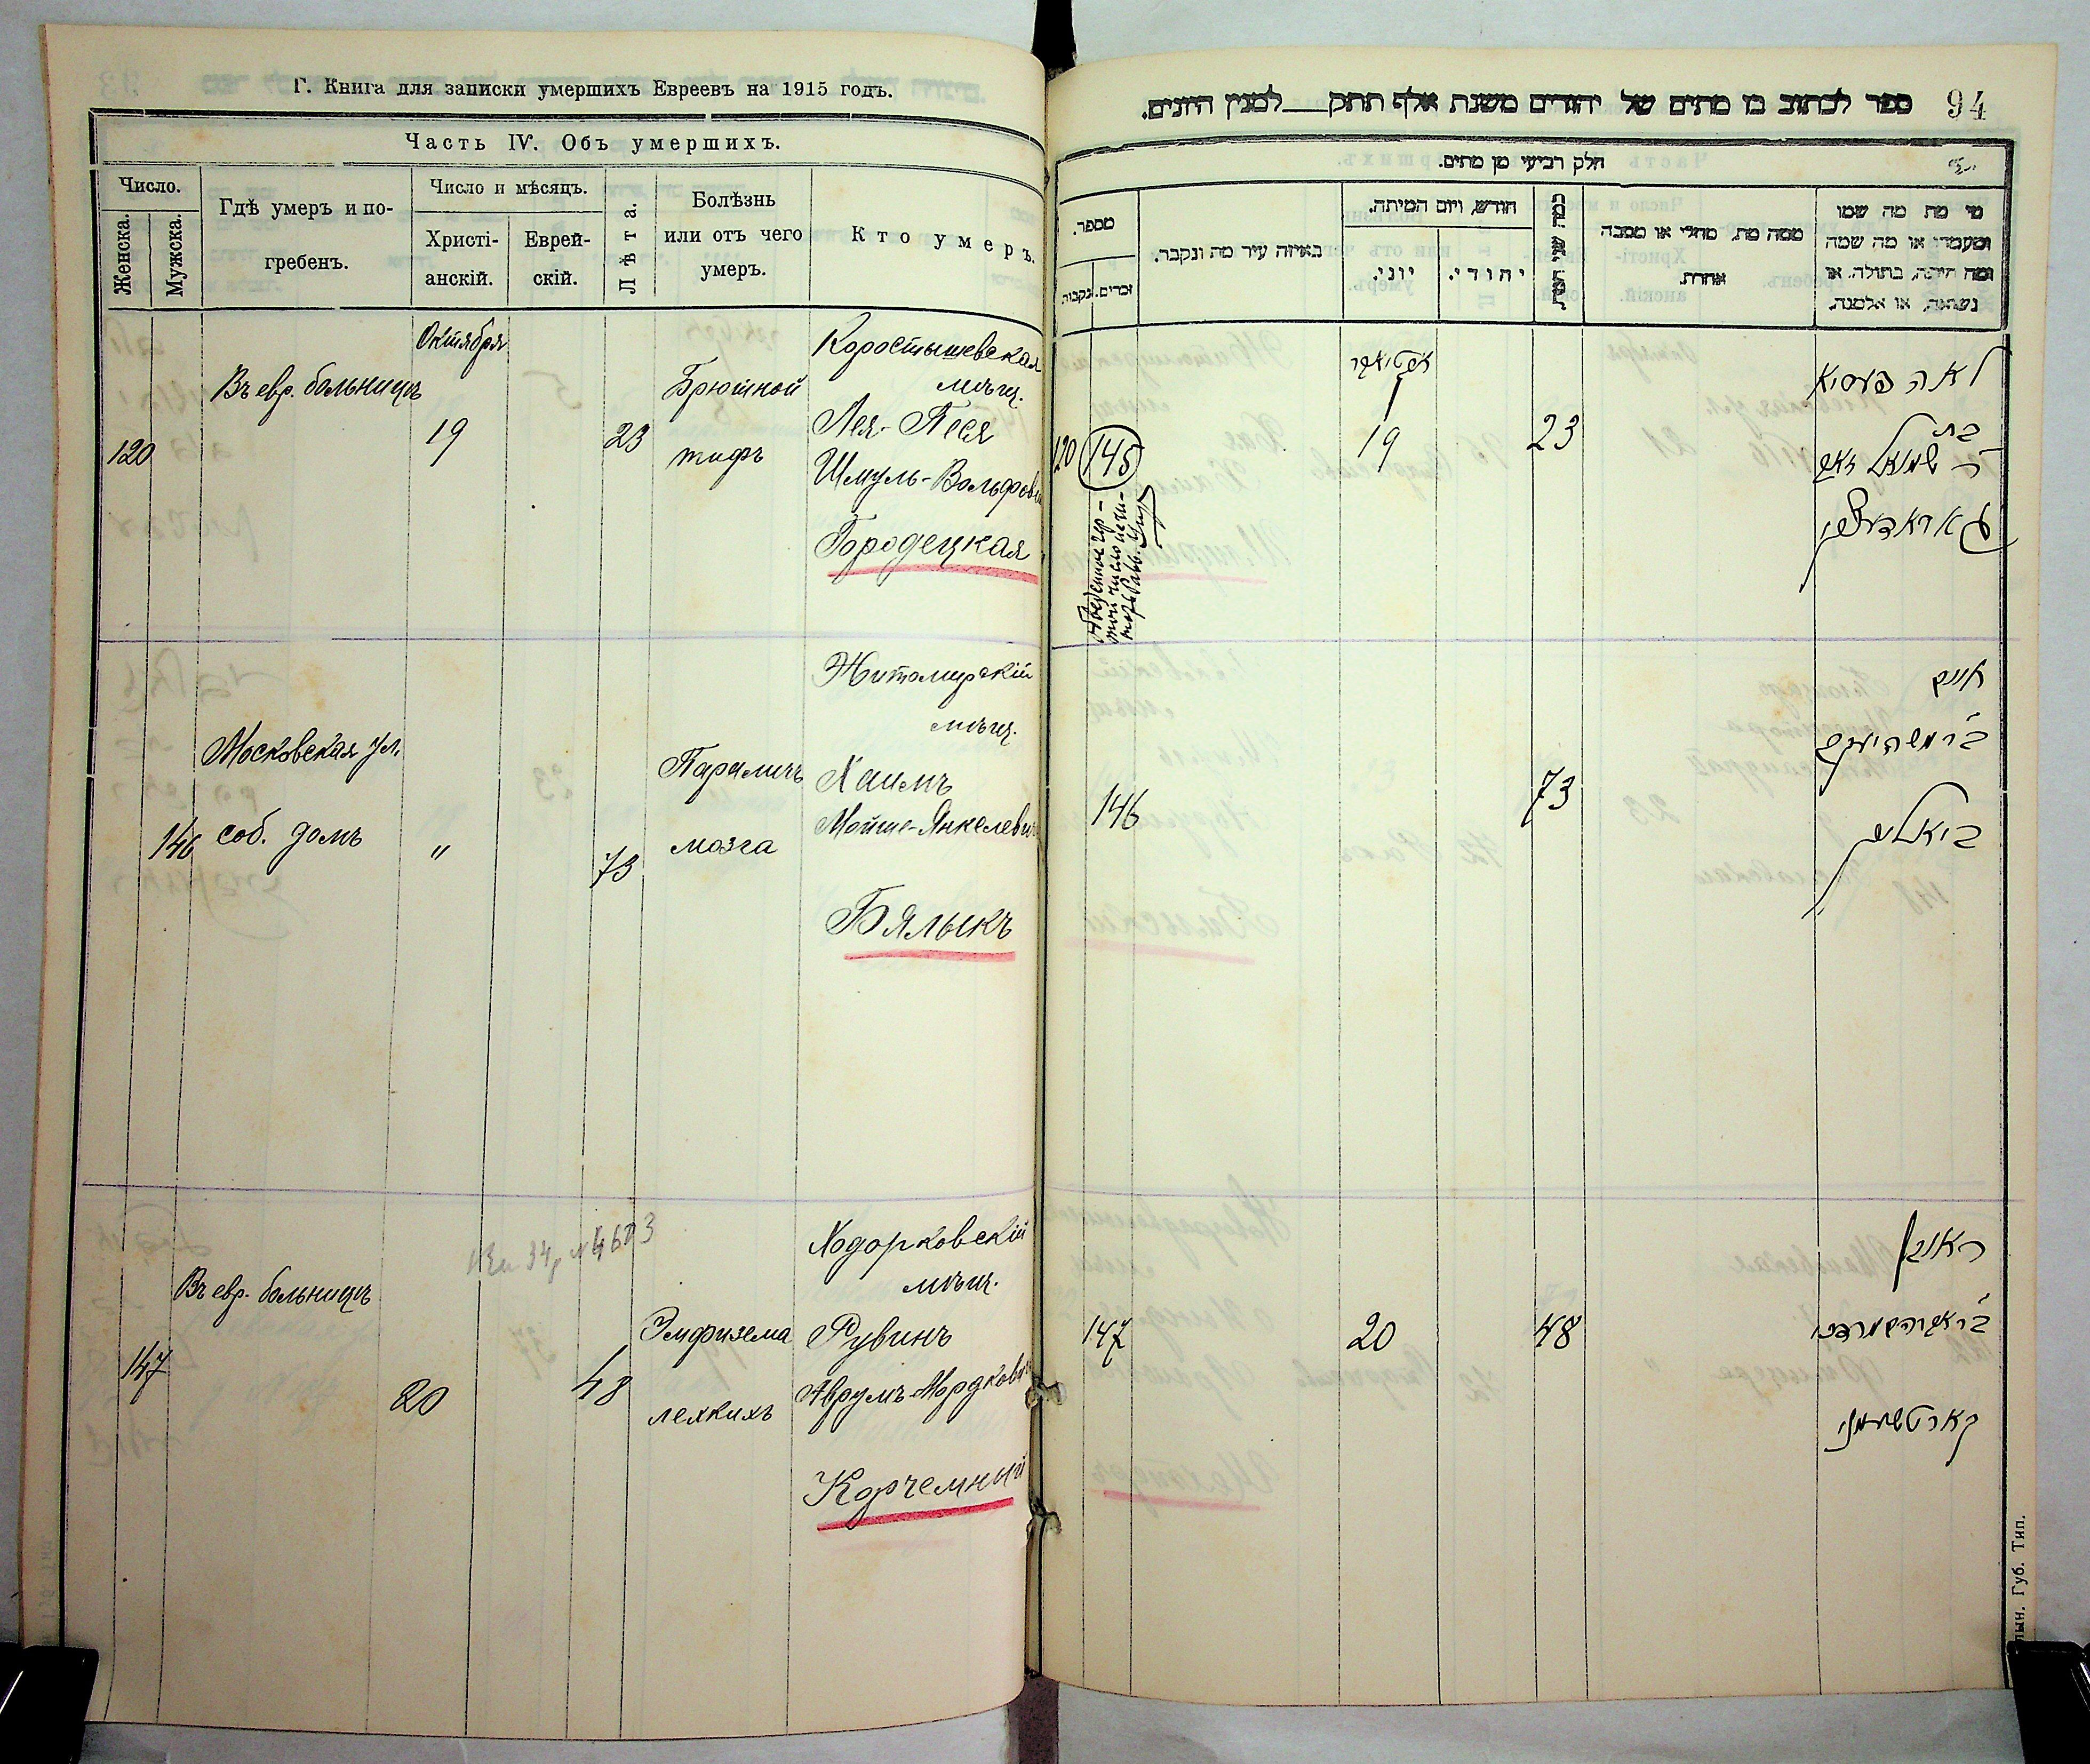 Г. Книга для записки умершихъ Евреевъ на 1915 годъ.
Часть IV. Объ умершихъ.
Число.
Женска.
Мужска.
Гдѣ умеръ и по-
гребенъ.
Число и мѣсяцъ.
Христі-
анскій.
Еврей-
скій.
Лѣта.
Болѣзнь
или отъ чего
умеръ.
Кто умеръ.
120
Въ евр. больницѣ
Октября
19
23
Брюшной
тифъ
Коростышевская
мѣщ.
Лея-Песя
Шмуль-Вольфов
Городецкая
146
Московская ул.
соб. домъ
"
73
Параличъ
мозга
Житомирскій
мѣщ.
Хаимъ
Мойше-Янкелевич
Бялыкъ
147
Въ евр. больницѣ
20
48
Эмфизема
легкихъ
Ходорковскій
мѣщ.
Рувинъ
Аврумъ-Мордков
Корчемный
94
ספר לכתוב בו מתים של יהודים משנת אלף תתק למנין היונים.
חלק רביעי מן מתים.
מספר.
זכרים.
נקבות
באיזה עיר מת ונקבר.
חודש, ויום המיתה.
יוני.
יהודי.
כמה שני המת
ממה מת, מחלי או מסבה
אחרת.
מי מת מה שמו
ומעמדו או מה שמה
ומה היתה, בתולה, או
נשואה, או אלמנה.
120
145
19
23
לאה פעסיא
בת
ר' שמואל וואף
גאראדעצקי
146
73
חיים
ב"ר משה יענקל
ביאליק
147
20
48
ראובן
ב"ר אברהם מרדכי
קארטשעמני
Губ. Тип.